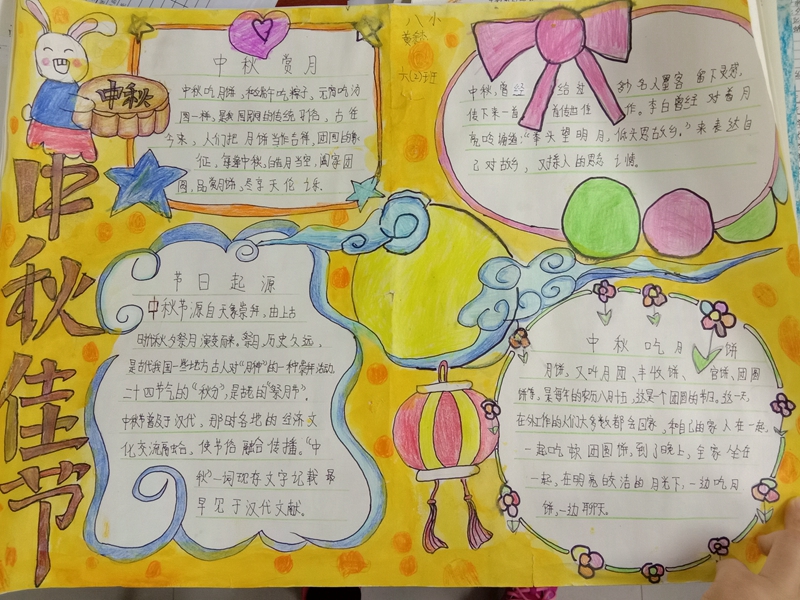 八小
黄
六(2)班
中秋
中秋佳节
中秋赏月
中秋吃月饼,和端午吃粽子,元宵吃汤
圆一样,是我国民间的传统习俗,古往
今来,人们把月饼当作吉祥,团圆的象
征,每逢中秋,皓月当空,阖家团
圆,品赏月饼,尽享天伦之乐。
中秋,曾经给过 多少名人墨客留下灵感,
传下来一首首传世佳作。李白曾经对着月
亮吟诵道:“举头望明月,低头思故乡。”来表达自
己对故乡,对亲人的思念之情。
节日起源
中秋节源自天象崇拜,由上古
时代秋夕祭月演变而来。祭月历史久远,
是古代我国一些地方古人对“月神”的一种崇拜活动,
二十四节气的“秋分”,是古老的“祭月节”。
中秋节普及于汉代,那时各地的经济文
化交流融合,使节俗融合传播。“中
秋”一词现存文字记载最
早见于汉代文献。
中秋吃月饼
月饼,又叫月团、丰收饼、宫饼、团圆
饼等,是每年的农历八月十五,这是一个团圆的节日。这一天,
在外工作的人们大多数都会回家,和自己的家人在一起,
一起吃软团圆饼,到了晚上,全家坐在
一起,在明亮皎洁的月光下,一边吃月
饼,一边聊天。